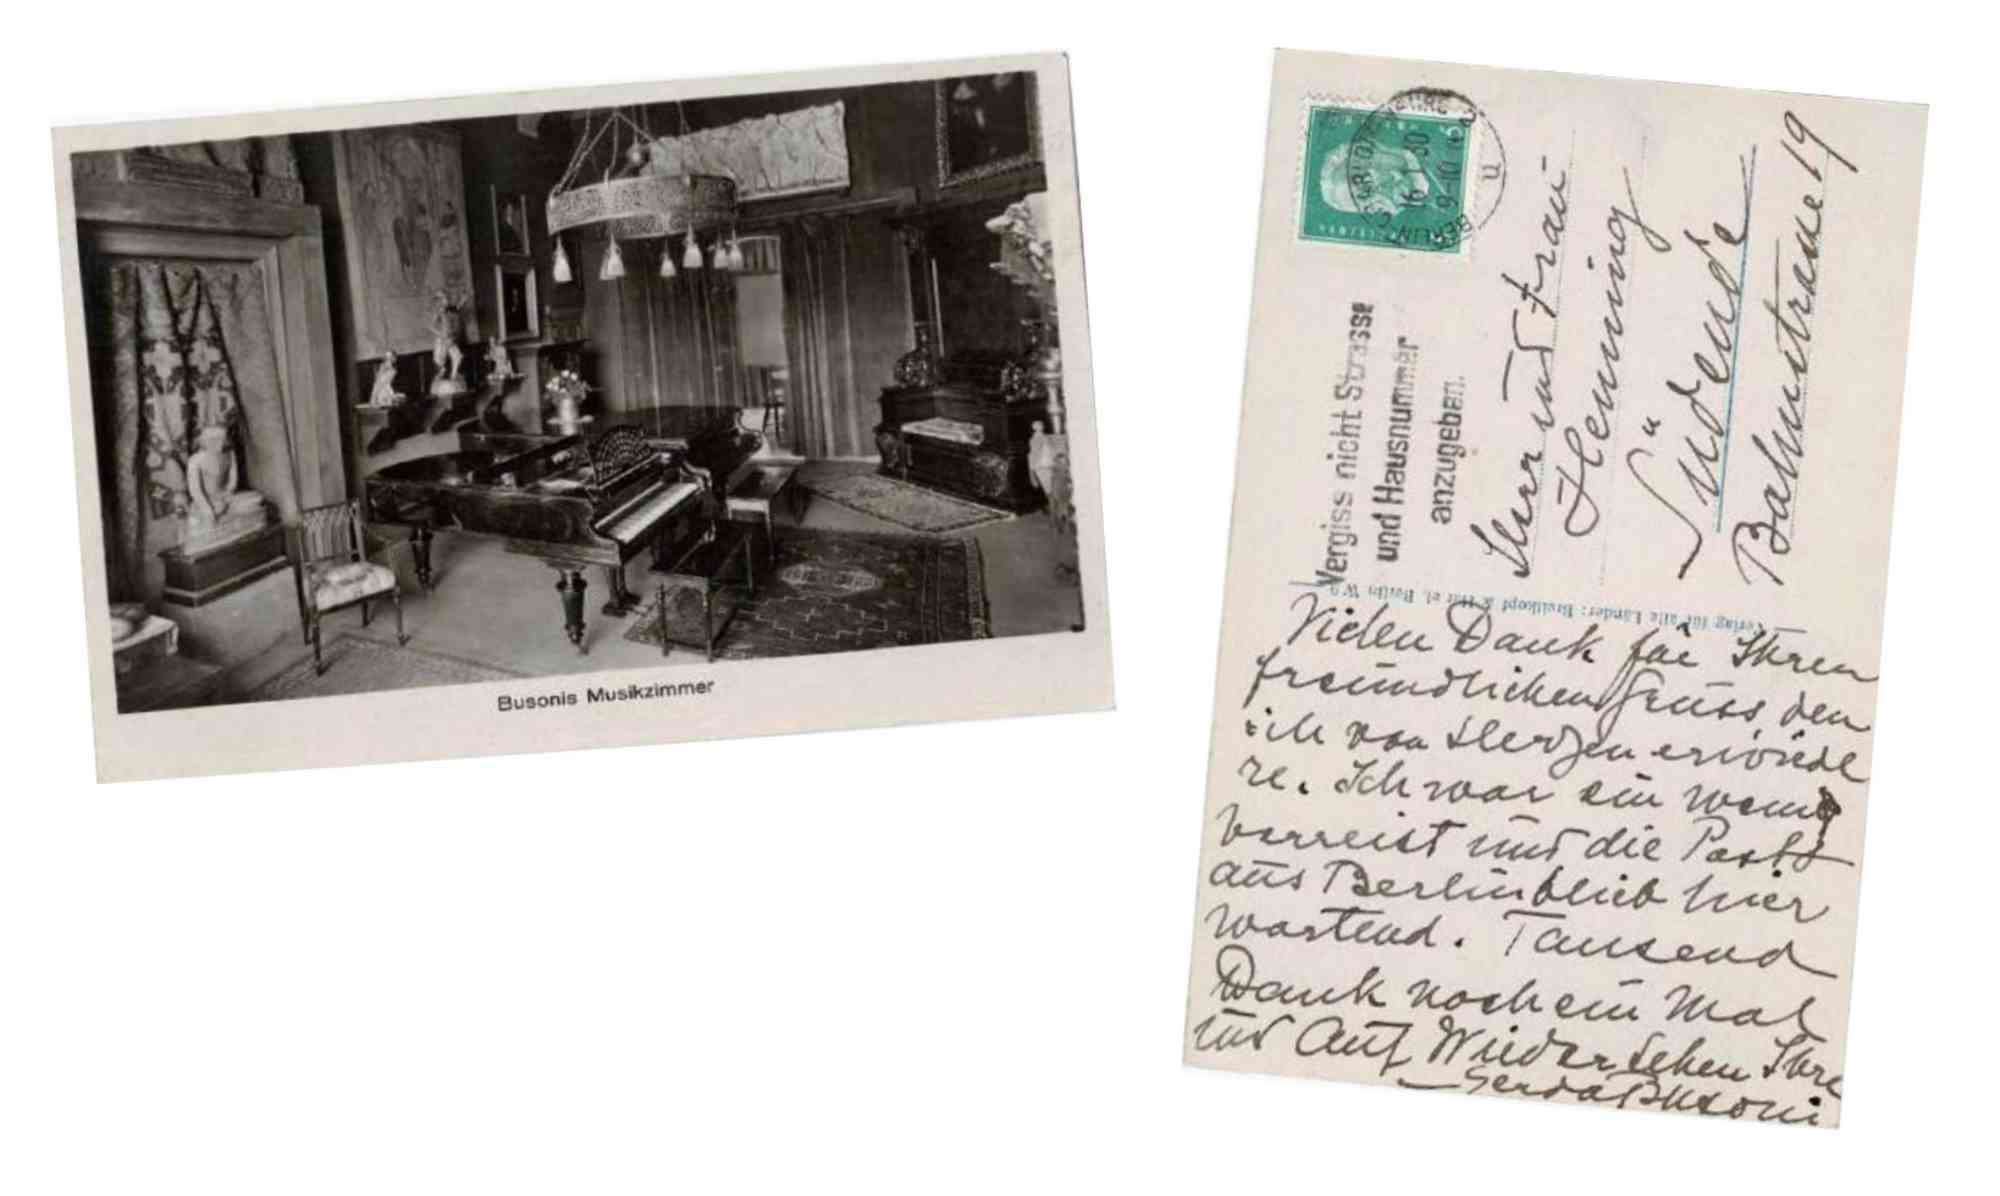 Busonis Musikzimmer
BERLIN-CHARLOTTENBURG
16.1.30
9-10
u
Vergiss nicht Strasse
und Hausnummer
anzugeben.
Herr und Frau
Henning
Südende
Bahnstrasse 19
Verlag für alle Länder: Breitkopf & Härtel, Berlin W 9
Vielen Dank für Ihren
freundlichen Gruss den
ich von Herzen erwiede
re. Ich war ein wenig
verreist und die Post
aus Berlin blieb hier
wartend. Tausend
Dank noch ein Mal
und Auf Wiedersehen Ihre
Gerda Busoni